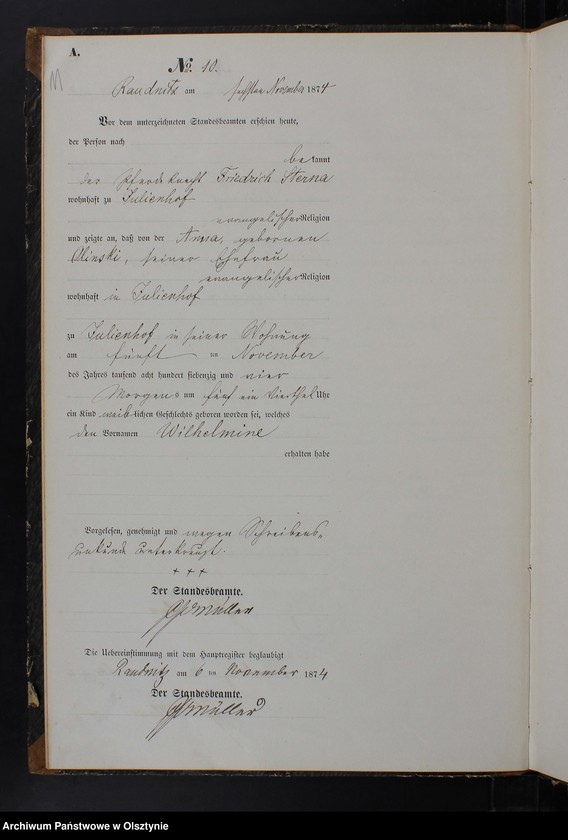 A.
№ 10.
11
Raudnitz am sechsten November 1874
Vor dem unterzeichneten Standesbeamten erschien heute,
der Person nach
bekannt
der Pferdeknecht Friedrich Sterna
wohnhaft zu Julienhof
evangelischer Religion
und zeigte an, daß von der Anna, geborenen
Olinski, seiner Ehefrau
evangelischer Religion
wohnhaft in Julienhof
zu Julienhof in seiner Wohnung
am fünften November
des Jahres tausend acht hundert siebenzig und vier
Morgens um fünf ein Viertel Uhr
ein Kind weiblichen Geschlechts geboren worden sei, welches
den Vornamen Wilhelmine
erhalten habe
Vorgelesen, genehmigt und wegen Schreibens-
unkunde unterkreuzt.
+ + +
Der Standesbeamte.
Müller
Die Uebereinstimmung mit dem Hauptregister beglaubigt
Raudnitz am 6 ten November 1874
Der Standesbeamte.
Müller
Archiwum Państwowe w Olsztynie